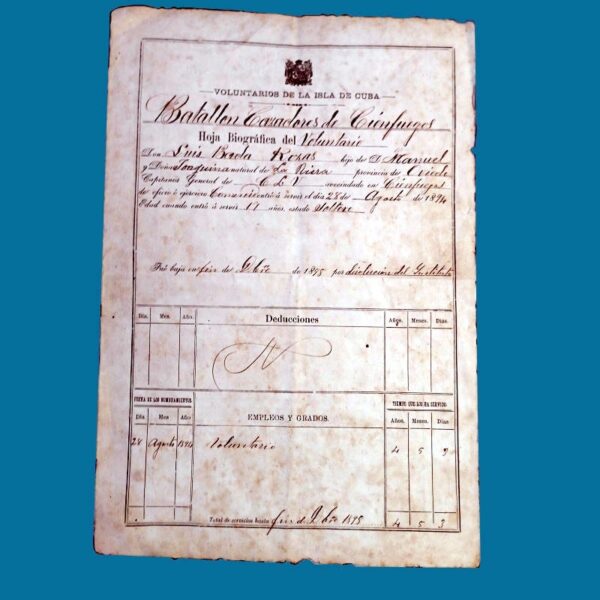 VOLUNTARIOS DE LA ISLA DE CUBA
Batallon Cazadores de Cienfuegos
Hoja Biográfica del Voluntario
Don Luis Rozas hijo de D. Manuel
y Doña Joaquina natural de La Riera provincia de Oviedo
Capitanía General de C L V avecindado en Cienfuegos
de oficio ó ejercicio Comercio entró á servir el día 28 de Agosto de 1894
Edad cuando entró á servir 19 años, estado Soltero
Fué baja en fin de de 1898 por disolucion del Instituto
Día. Mes. Año. Deducciones Años. Meses. Días.
N
FECHA DE LOS NOMBRAMIENTOS TIEMPO QUE LOS HA SERVIDO
Día Mes Año EMPLEOS Y GRADOS. Años. Meses. Días
28 Agosto 1894 Voluntario 4 5 3
Total de servicios hasta fin de 1898 4 5 3